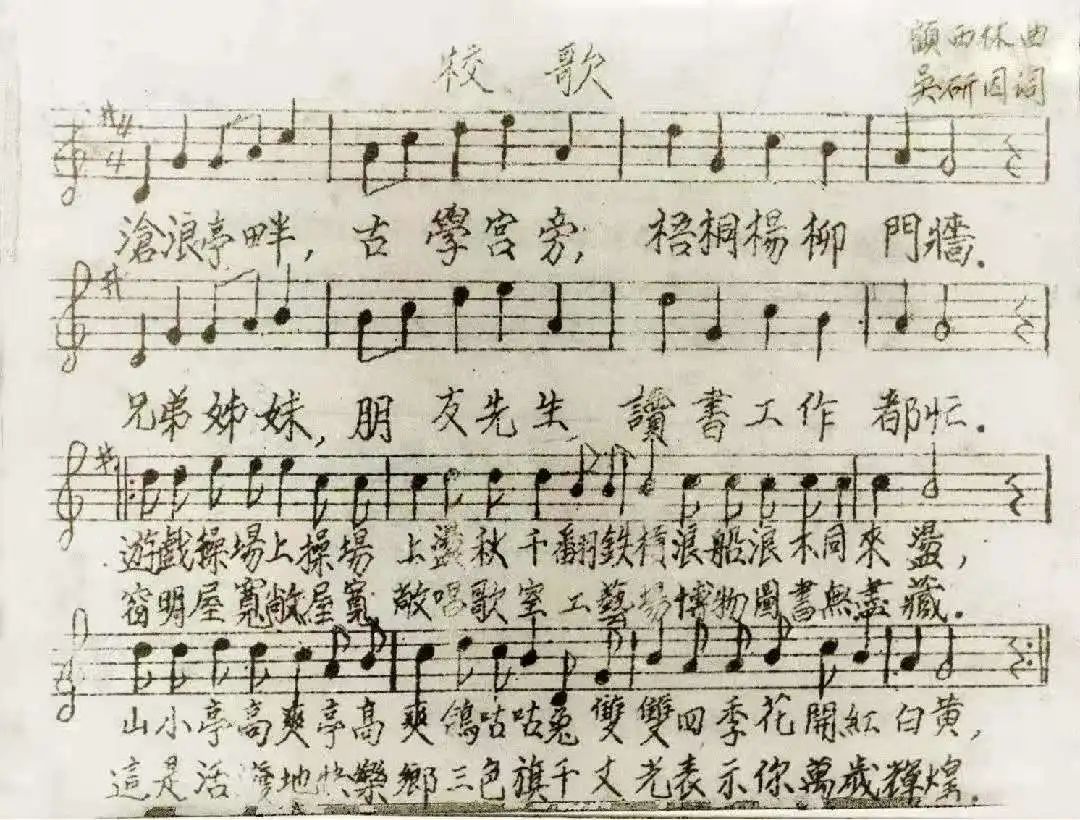 校歌
顧西林曲
吳研因词
滄浪亭畔，古學宮旁，梧桐楊柳門牆．
兄弟姊妹，朋友先生，讀書工作都忙．
遊戲操場上操場上盪秋千翻鉄槓浪船浪木同來盪，
窗明屋寬敞屋寬敞唱歌室工藝場博物圖書無盡藏．
山小亭高爽亭高爽鴿咕咕兔雙雙四季花開紅白黄，
這是活潑地快樂鄉三色旗千丈光表示你萬歲輝煌．